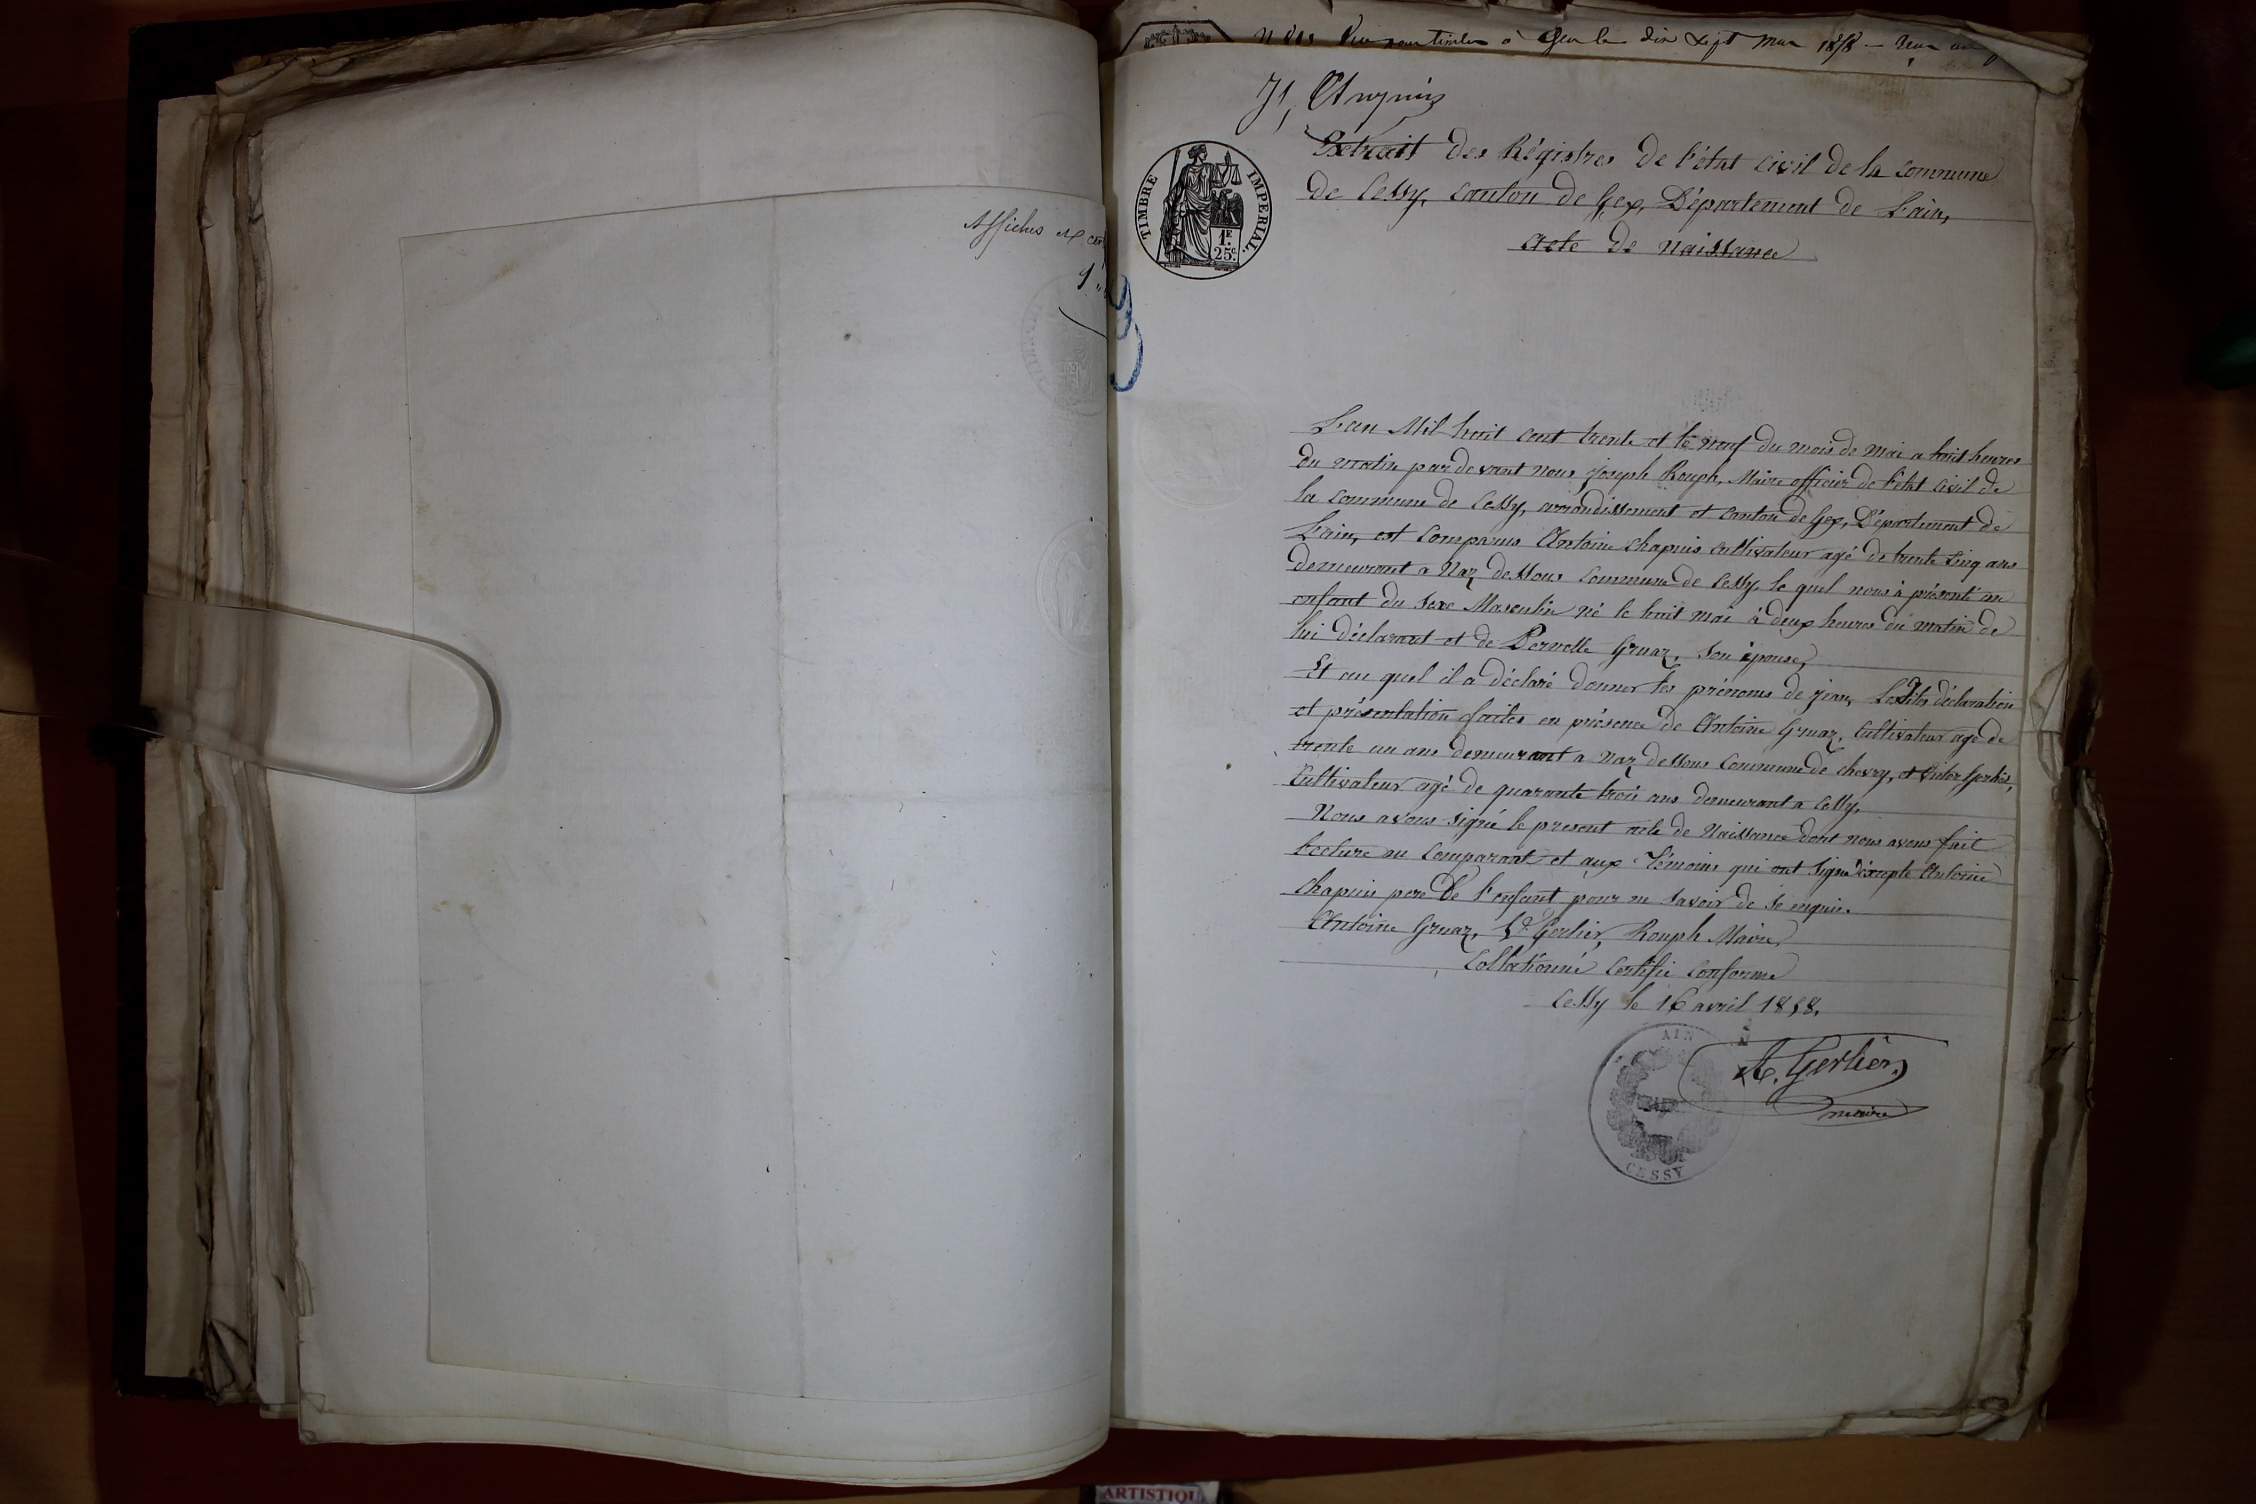 Affiches et
N° 803 Vu pour timbre à Gex le dix sept mai 1858
71, Chapuis
Extrait des Régistres de l'état civil de la commune
de Cessy, canton de Gex, Département de L'ain,
acte de naissance
TIMBRE IMPERIAL.
1F.
25c.
L'an Mil huit cent trente et le neuf du mois de mai a huit heures
du matin par devant nous joseph Rouph, Maire officier de l'état civil de
la commune de Cessy, arrondissement et canton de Gex, Département de
L'ain, est comparus Antoine chapuis cultivateur agé de trente cinq ans
demeurant a Naz dessous commune de Cessy, le quel nous à présenté un
enfant du sexe Masculin né le huit mai à deux heures du matin de
lui déclarant et de Pernelle Gruaz, son épouse,
Et au quel il a déclaré donner les prénoms de jean, Lesdites déclaration
et présentation faites en présence de Antoine Gruaz, Cultivateur agé de
trente un ans demeurant a Naz dessous Commune de chevry, et
Cultivateur agé de quarante trois ans demeurant a Cessy,
Nous avons signé le present acte de Naissance dont nous avons fait
Lecture au Comparant et aux Témoins qui ont signé éxcepte Antoine
chapuis pere De l'enfant pour ne savoir de ce enquis.
Antoine Gruaz, Gerlier, Rouph Maire
Collationné Certifié Conforme
Cessy le 16 avril 1858.
AIN
CESSY
A. Gerlier,
maire
ARTISTIQU